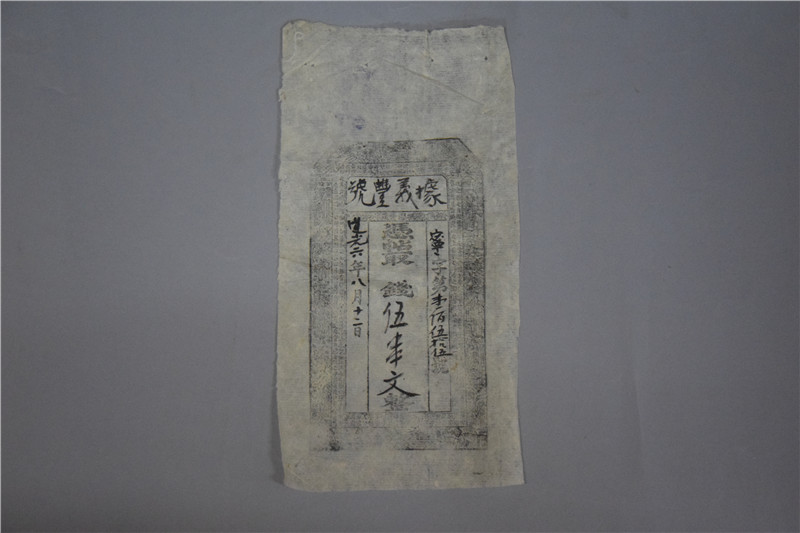 據義豐號
寧字第壹佰伍拾伍號
憑帖取錢伍串文整
道光六年八月十二日